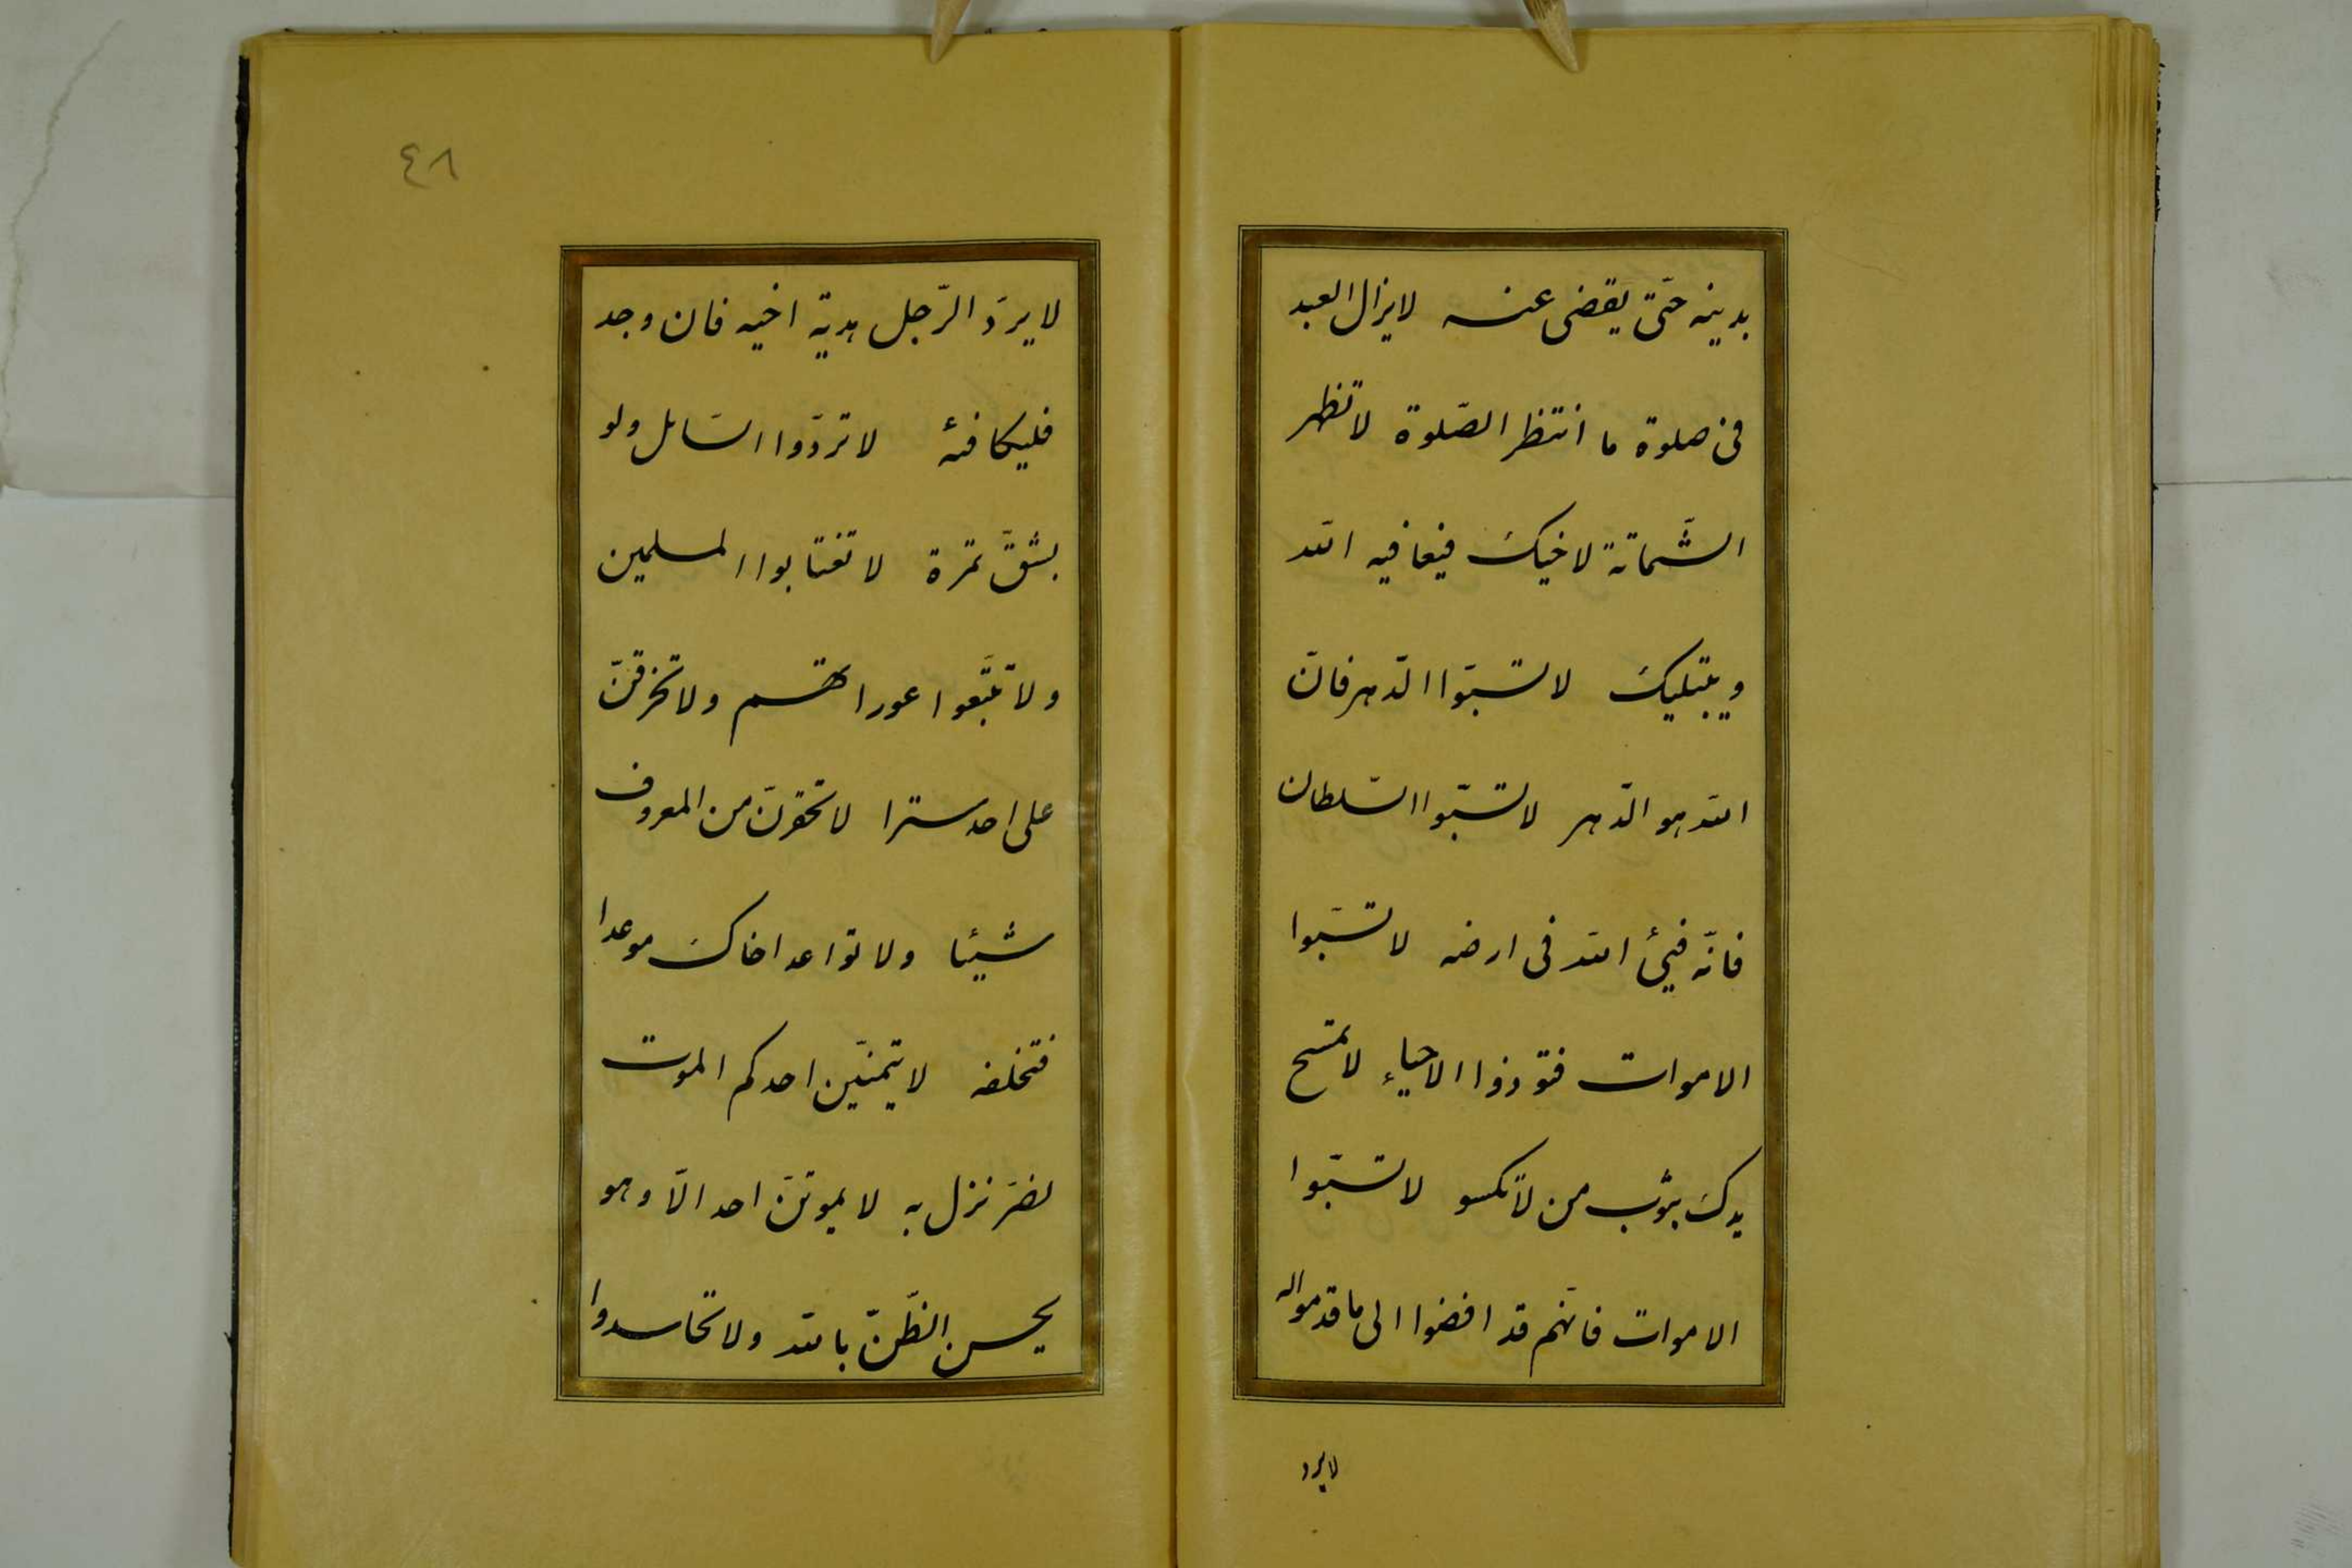 بدينه حتّى يقضى عنه لا يزال العبد
فى صلوة ما انتظر الصّلوة لا تظهر
الشّماتة لاخيك فيعافيه الله
ويبتليك لا تسبّوا الدّهر فانّ
الله هو الدّهر لا تسبّوا السّلطان
فانّه فيئ الله فى ارضه لا تسبّوا
الاموات فتوذوا الاحياء لا تمسح
يدك بثوب من لا تكسو لا تسبّوا
الاموات فانّهم قد افضوا الى ما قدموا له
لا يرد
٤٨
لا يردّ الرّجل هديّة اخيه فان وجد
فليكافئه لا تردّوا السّائل ولو
بشقّ تمرة لا تغتابوا المسلمين
ولا تتبّعوا عوراتهم ولا تخرقنّ
على احد سترا لا تحقرنّ من المعروف
شيئا ولا تواعد اخاك موعدا
فتخلفه لا يتمنّين احدكم الموت
لضرّ نزل به لا يموتنّ احد الّا وهو
يحسن الظّنّ بالله ولا تحاسدوا